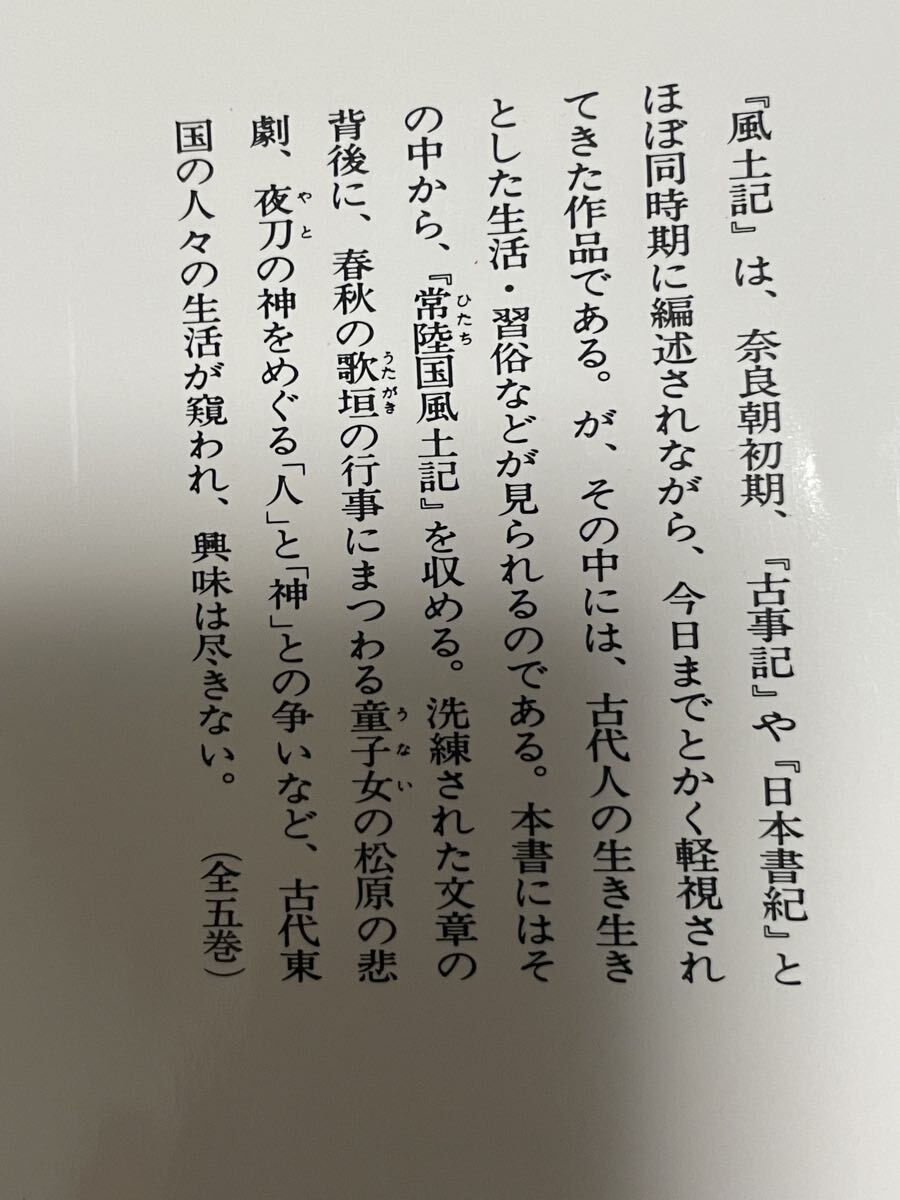 『風土記』は、奈良朝初期、『古事記』や『日本書紀』と
ほぼ同時期に編述されながら、今日までとかく軽視され
てきた作品である。が、その中には、古代人の生き生き
とした生活・習俗などが見られるのである。本書にはそ
の中から、『常陸国風土記』を収める。洗練された文章の
背後に、春秋の歌垣の行事にまつわる童子女の松原の悲
劇、夜刀の神をめぐる「人」と「神」との争いなど、古代東
国の人々の生活が窺われ、興味は尽きない。（全五巻）
ひたち
うたがき
うない
やと